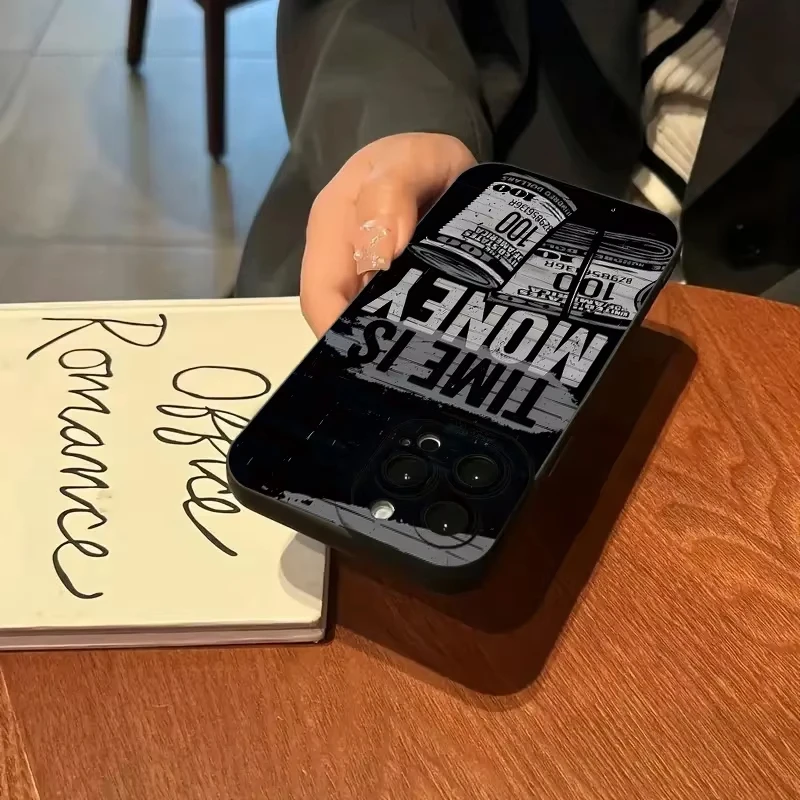 Office
Romance
TIME IS
MONEY
100
HUNDRED DOLLARS
100
BZ9856136R
100